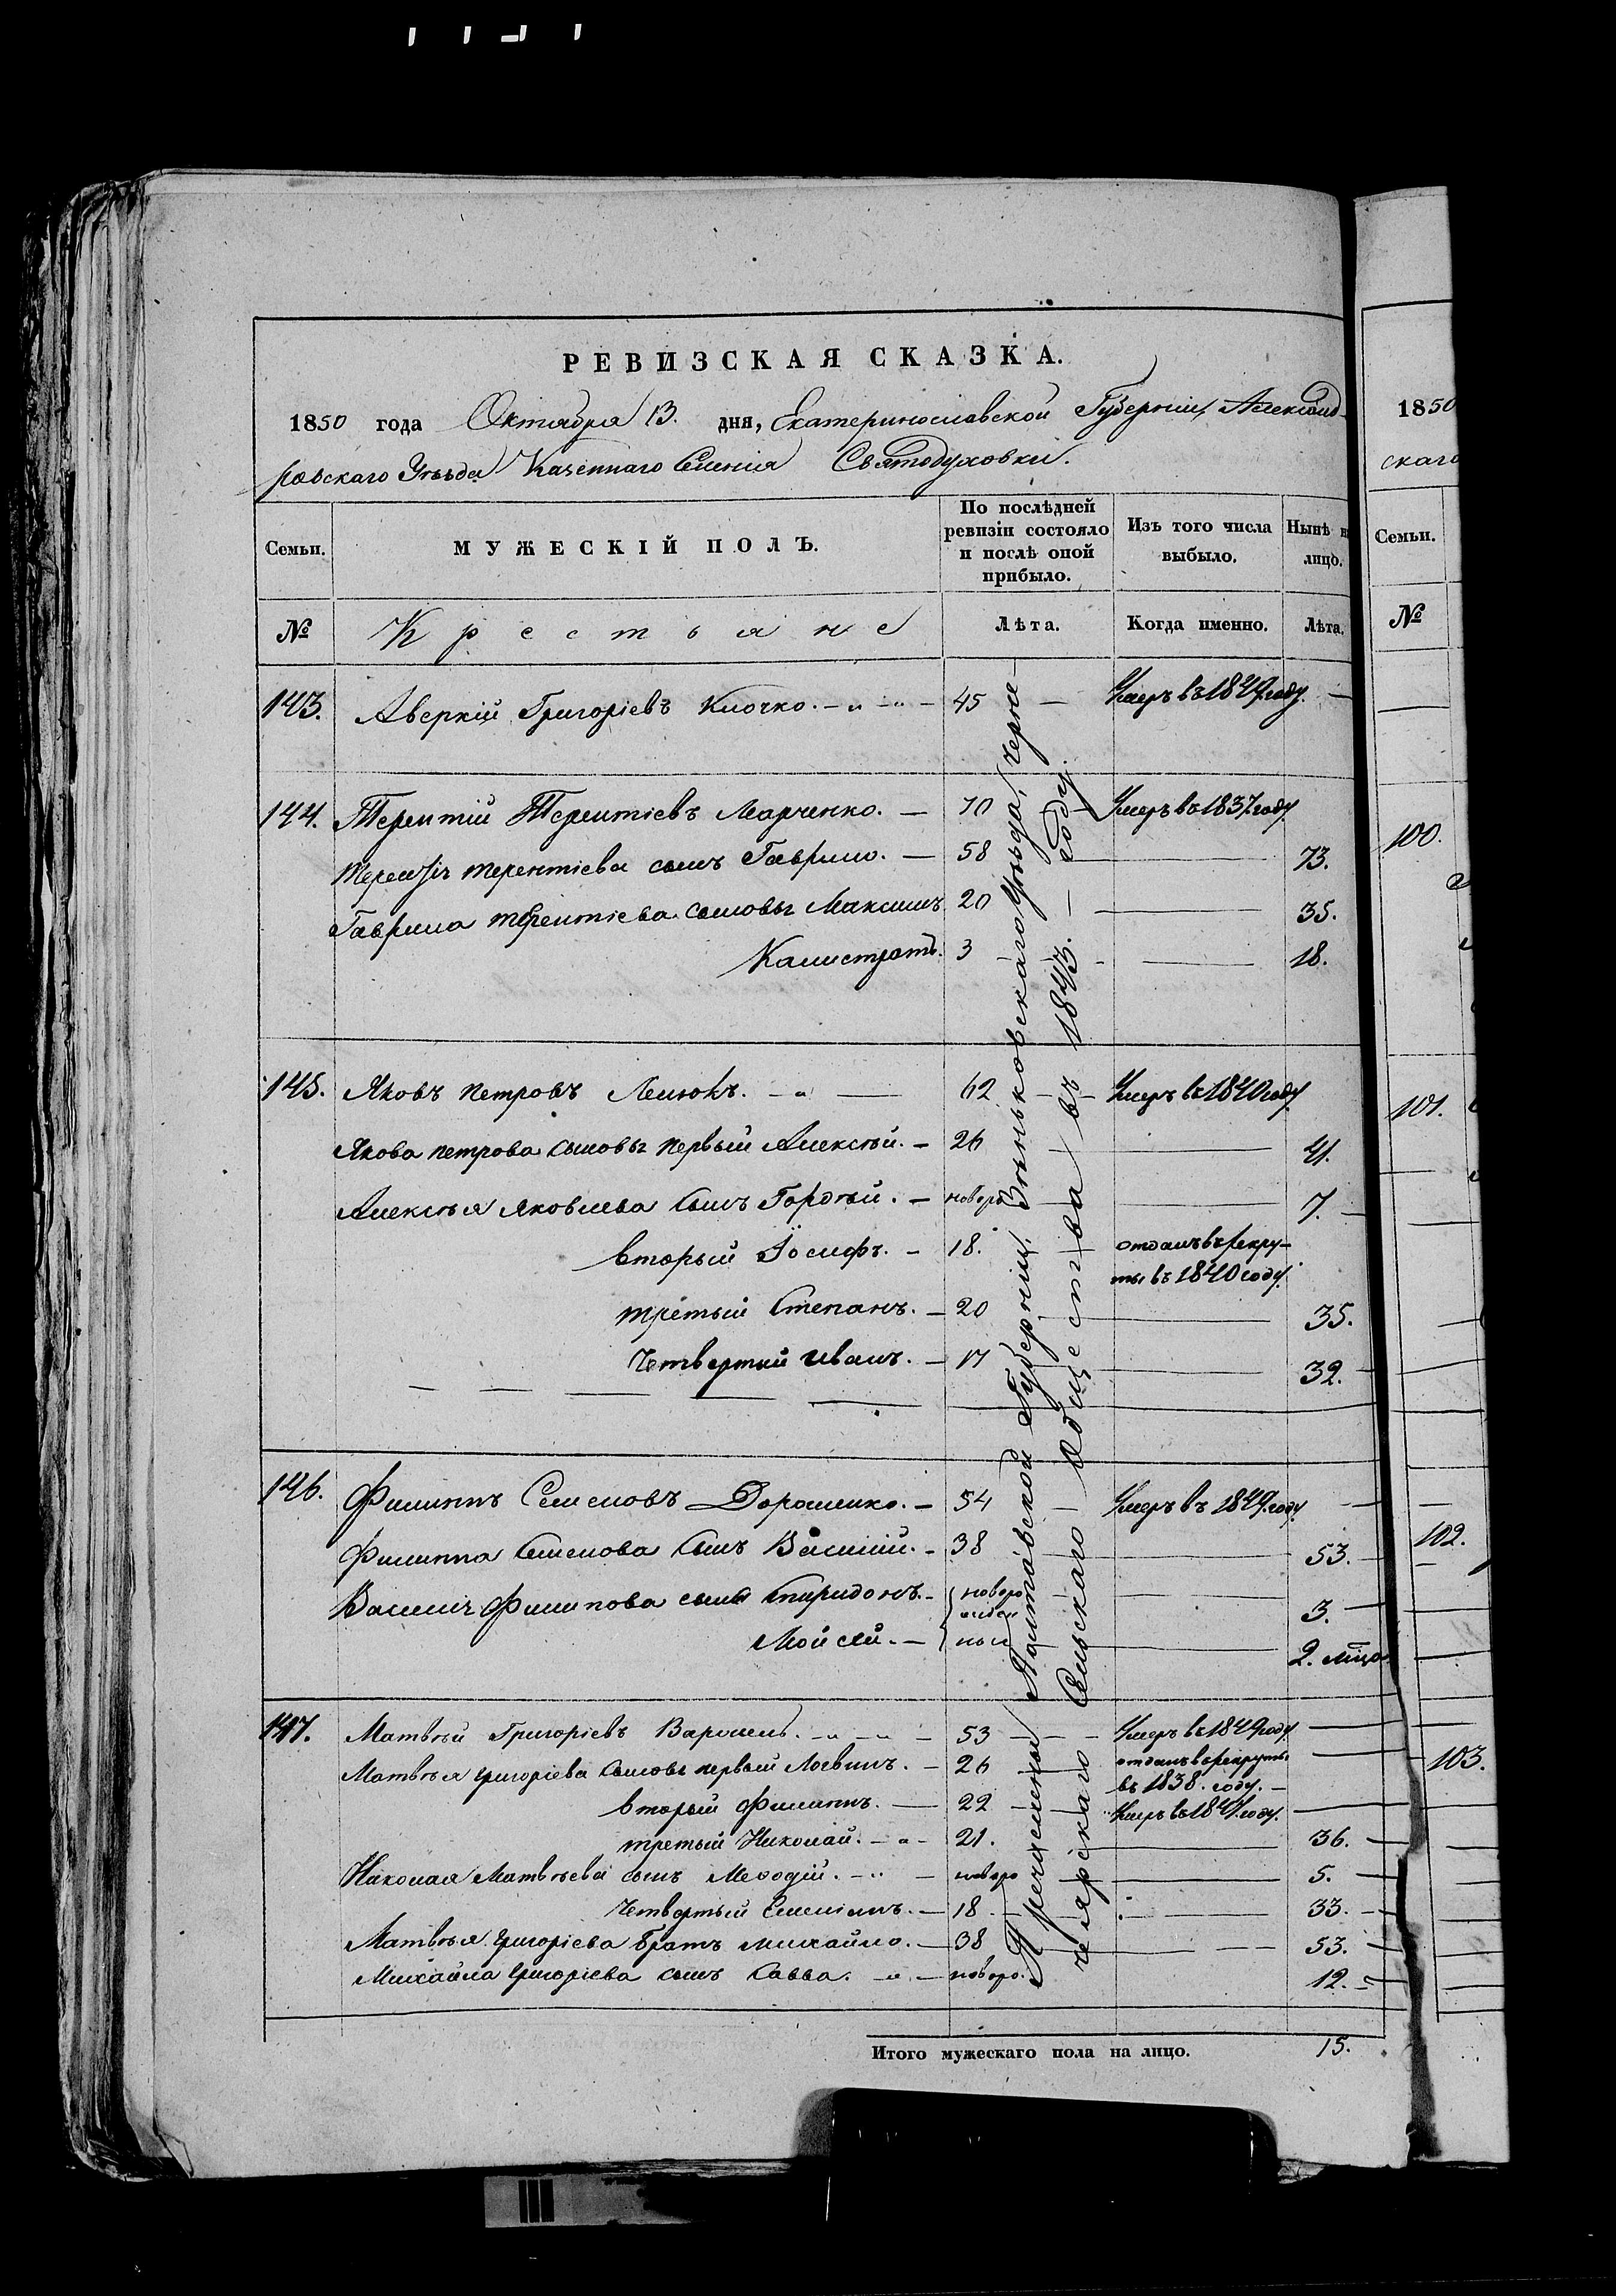 РЕВИЗСКАЯ СКАЗКА.
1850 года Октября 13. дня, Екатеринославской Губерніи, Александ-
ровскаго Уѣзда Казеннаго Селенія Святодуховки.
Семьи. МУЖЕСКІЙ ПОЛЪ. По послѣдней ревизіи состояло и послѣ оной прибыло. Изъ того числа выбыло. Нынѣ на лицо.
№ Крестьяне Лѣта. Когда именно. Лѣта.
143. Аверкій Григорьевъ Клочко. — 45 — Умеръ въ 1849 году. —
144. Терентій Терентіевъ Марченко. — 70 Умеръ въ 1837 году.
Терентія терентіева сынъ Гаврило. — 58 — 73.
Гаврила терентіева сыновья Максимъ 20 — 35.
Калистратъ. 3 — 18.
145. Яковъ петровъ Лемюкъ. — 62 — Умеръ въ 1840 году.
Якова петрова сыновья первый Алексѣй. — 26 — 41.
Алексѣя Яковлева сынъ Гордѣй. — новоро — 7. —
вторый Іосифъ. — 18. отданъ въ рекру-
ты въ 1840 году.
третый Степанъ. — 20 — 35.
Четвертый Иванъ. — 17 — 32.
146. Филиппъ Семеновъ Дорошенко. — 54 — Умеръ въ 1849 году —
Филиппа Семенова сынъ Василій. — 38 — 53. —
Василія Филипова сынъ Спиридонъ. — новоро — 3. —
жден
Мойсей. — ныи — 2. мѣсяц.
147. Матвѣй Григоріевъ Варшель. — 53 — Умеръ въ 1849 году. —
Матвѣя григоріева сыновья первый Логвинъ. — 26 отданъ въ рекруты —
въ 1838. году. —
вторый Филиппъ. — 22 — Умеръ въ 1847 году. —
третый Николай. — 21. — 36. —
Николая Матвѣева сынъ Меѳодій. — новоро — 5. —
Четвертый Емеліянъ. — 18. — 33. —
Матвѣя григоріева братъ михайло. — 38 — 53. —
Михайла григоріева сынъ Савва. — новоро. 12. —
Причислены Полтавской Губерніи, Зѣньковскаго Уѣзда, Черне-
чеярскаго Сельскаго Общества въ 1843. — году.
Итого мужескаго пола на лицо. 15.
1850
скаго
Семьи.
№
100.
101.
102.
103.